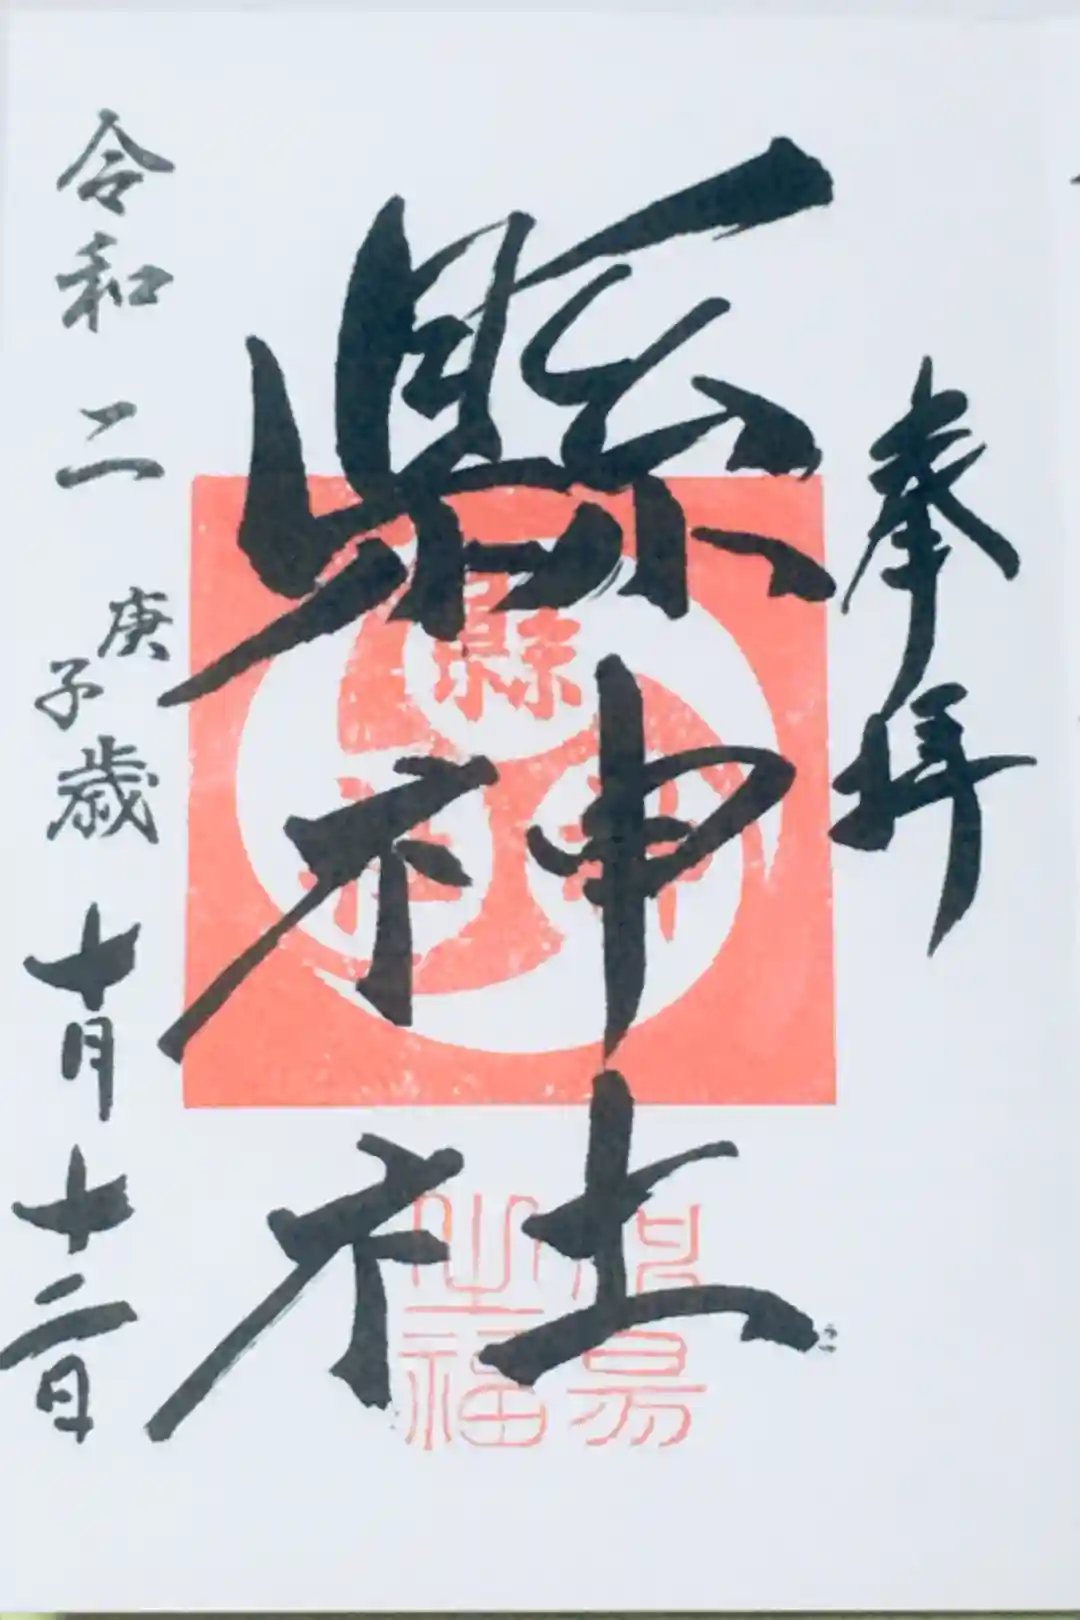 奉拝
縣神社
縣
神
社
之福
令和二庚子歳十月十二日